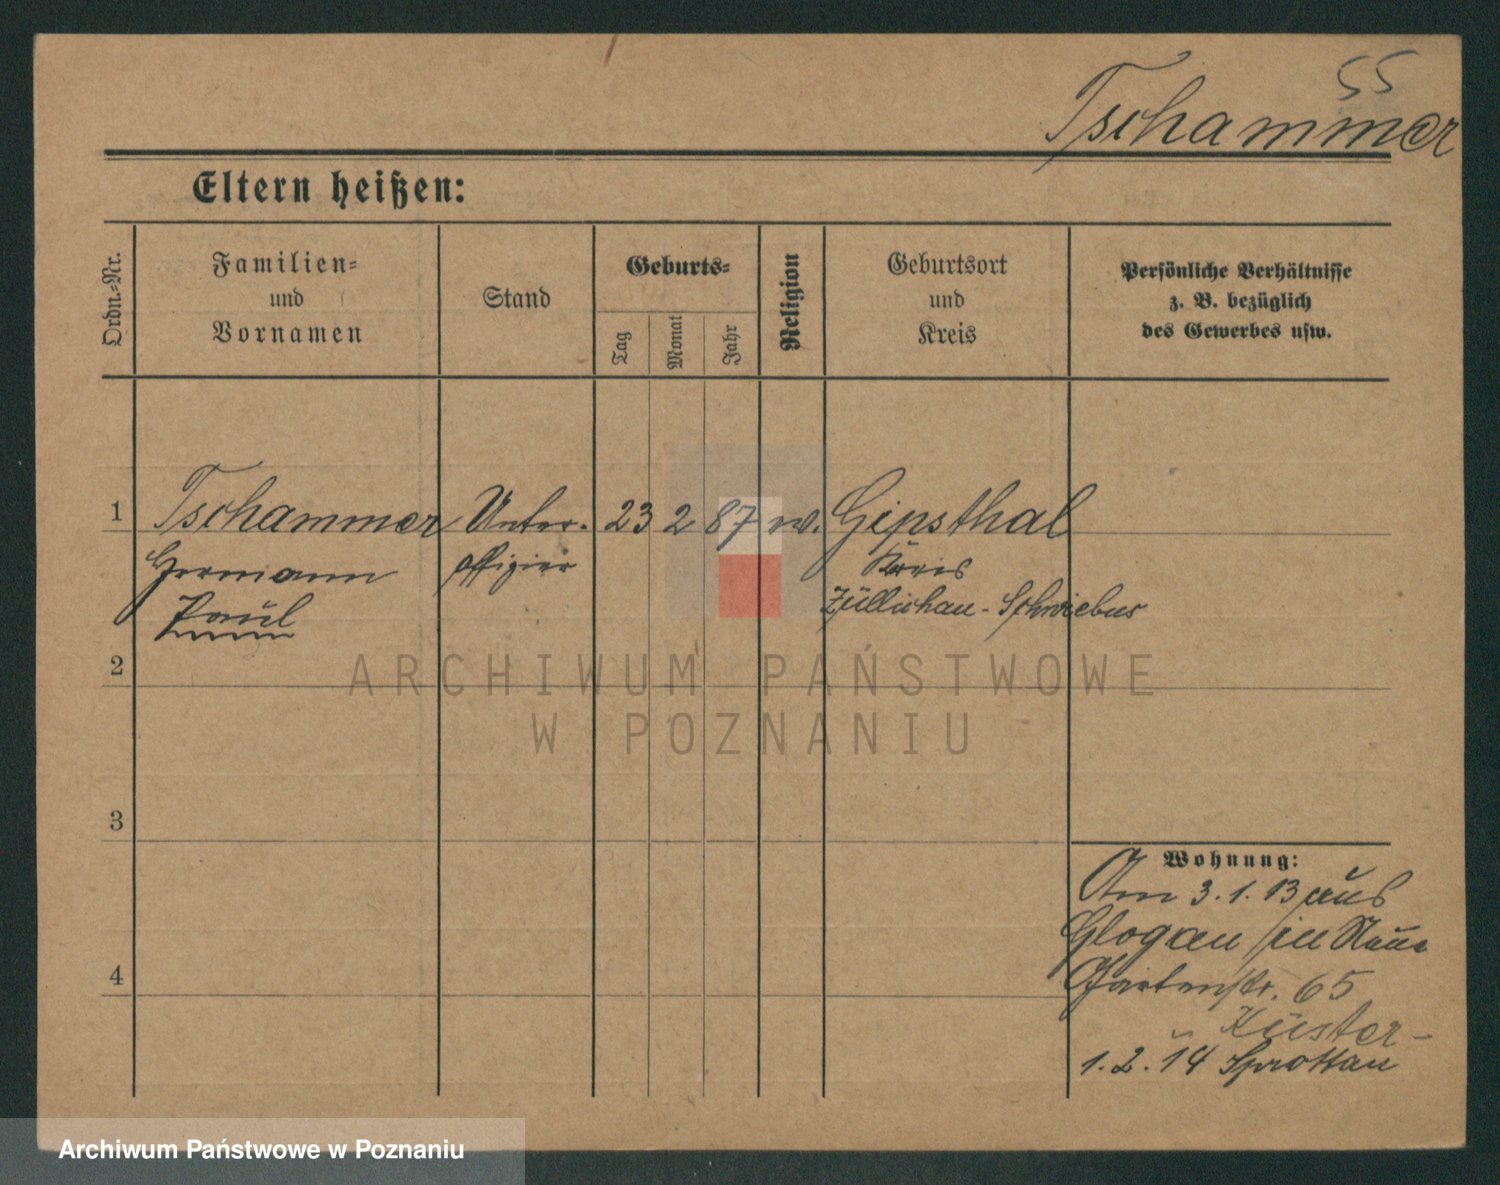 55
Tschammer
Eltern heißen:
Ordn.-Nr.
Familien-
und
Vornamen
Stand
Geburts-
Tag
Monat
Jahr
Religion
Geburtsort
und
Kreis
Persönliche Verhältnisse
z. B. bezüglich
des Gewerbes usw.
1 Tschammer Unter- 23 2 87 ev. Gipsthal
Hermann offizier Kreis
Paul Züllichau-Schwiebus
2
ARCHIWUM PAŃSTWOWE
W POZNANIU
3
Wohnung:
Am 3.1.13 aus
Glogau in
4
Gartenstr. 65
Küster-
1.2.14 Sprottau
Archiwum Państwowe w Poznaniu